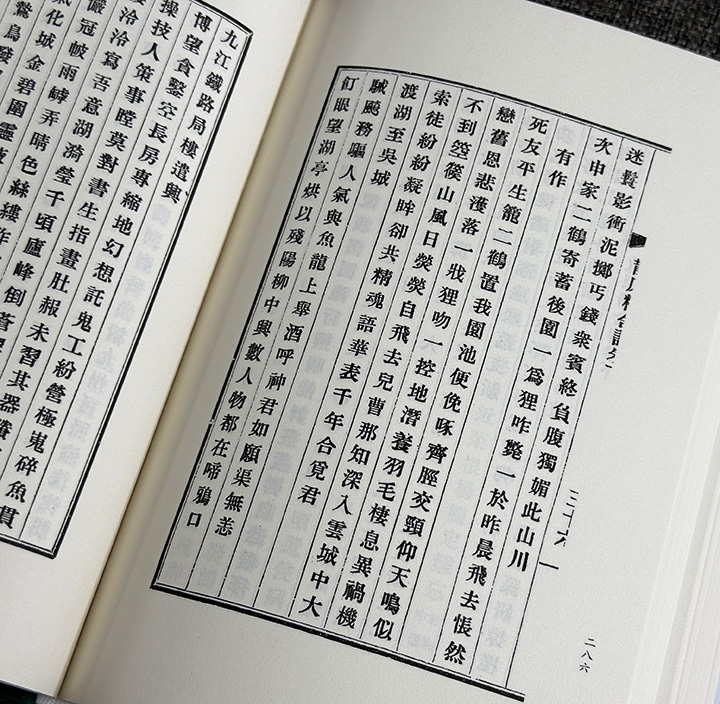 迷鬢影衝泥擲丐錢衆賓終負腹獨媚此山川
次申家二鶴寄蓄後園一爲狸咋斃一於昨晨飛去悵然
有作
死友平生籠二鶴置我園池便俛啄齊脛交頸仰天鳴似
戀舊恩悲濩落一戕狸吻一控地潛養羽毛棲息異禍機
不到箜篌山風日熒熒自飛去兒曹那知深入雲城中大
索徒紛紛凝眸卻共精魂語華表千年合覓君
渡湖至吳城
駴颷務驅人氣與魚龍上舉酒呼神君如願渠無恙
飣眼望湖亭烘以殘陽柳中興數人物都在啼鴉口
二八六
九江鐵路局樓遣興
博望貪鑿空長房專縮地幻想託鬼工紛營極嵬碎魚貫
操技人策事瞠莫對書生指畫肚赧未習其器
泠泠寫吾意湖漪瑩千頃廬峰倒蒼
儼冠帔雨罅弄晴色絲縷
氣化城金碧圍靈
鷙鳥發